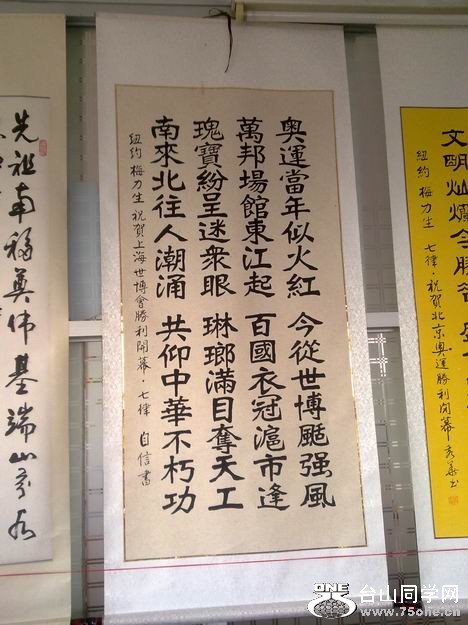 文明灿爛今勝
紐約 梅生 七律·祝賀北京奥運勝利開幕
奥運當年似火紅 今從世博颳强風
萬邦場館東江起 百國衣冠滬市逢
瑰寶紛呈迷衆眼 琳瑯滿目奪天工
南來北往人潮涌 共仰中華不朽功
紐約 梅生 祝賀上海世博會勝利開幕·七律 自信書
先祖南 奠伟基端山
ONE
台山同学网
www.75one.cn